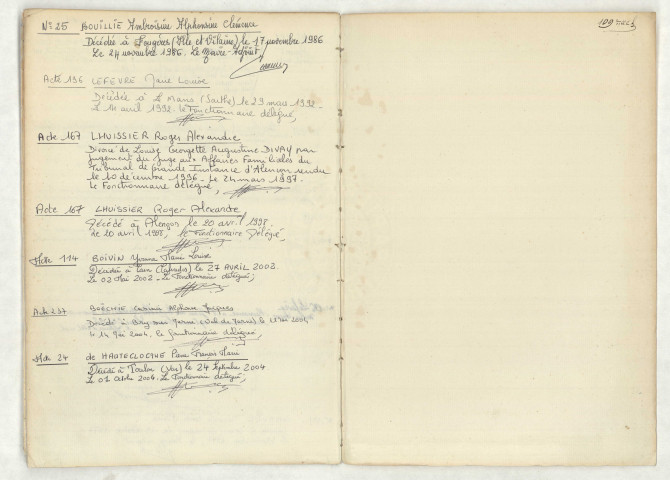 N° 25 BOUILLIE Ambroisine Alphonsine Clémence
Décédée à Fougères (Ille et Vilaine) le 17 novembre 1986
Le 24 novembre 1986. Le Maire-Adjoint
Acte 196 LEFEVRE Marie Louise
Décédée à Le Mans (Sarthe) le 29 mars 1992
Le avril 1992. le Fonctionnaire délégué,
Acte 167 LHUISSIER Roger Alexandre
Divorcé de Louise Georgette Augustine DIVAY par
jugement du Juge aux Affaires Familiales du
Tribunal de Grande Instance d'Alençon rendu
le 10 décembre 1996. Le 24 mars 1997.
le Fonctionnaire délégué,
Acte 167 LHUISSIER Roger Alexandre
Décédé à Alençon le 20 avril 1998.
Le 20 avril 1998, le Fonctionnaire Délégué,
Acte 114 BOIVIN Yvonne Marie Louise
Décédée à Caen (Calvados) le 27 AVRIL 2002.
Le 02 Mai 2002. Le Fonctionnaire délégué,
Acte 237 Alphonse Jacques
Décédé à Bry sur Marne (Val de Marne) le Mai 2004
le 14 Mai 2004, le fonctionnaire délégué,
Acte 24 de HAUTECLOCQUE Pierre Francis Marie
Décédé à Toulon (Var) le 24 Septembre 2004
Le 01 Octobre 2004. Le Fonctionnaire délégué,